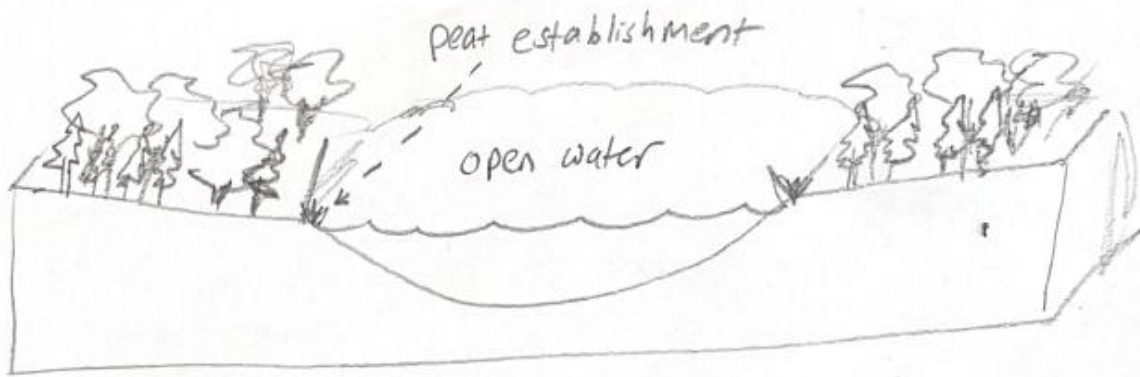 peat establishment
open water